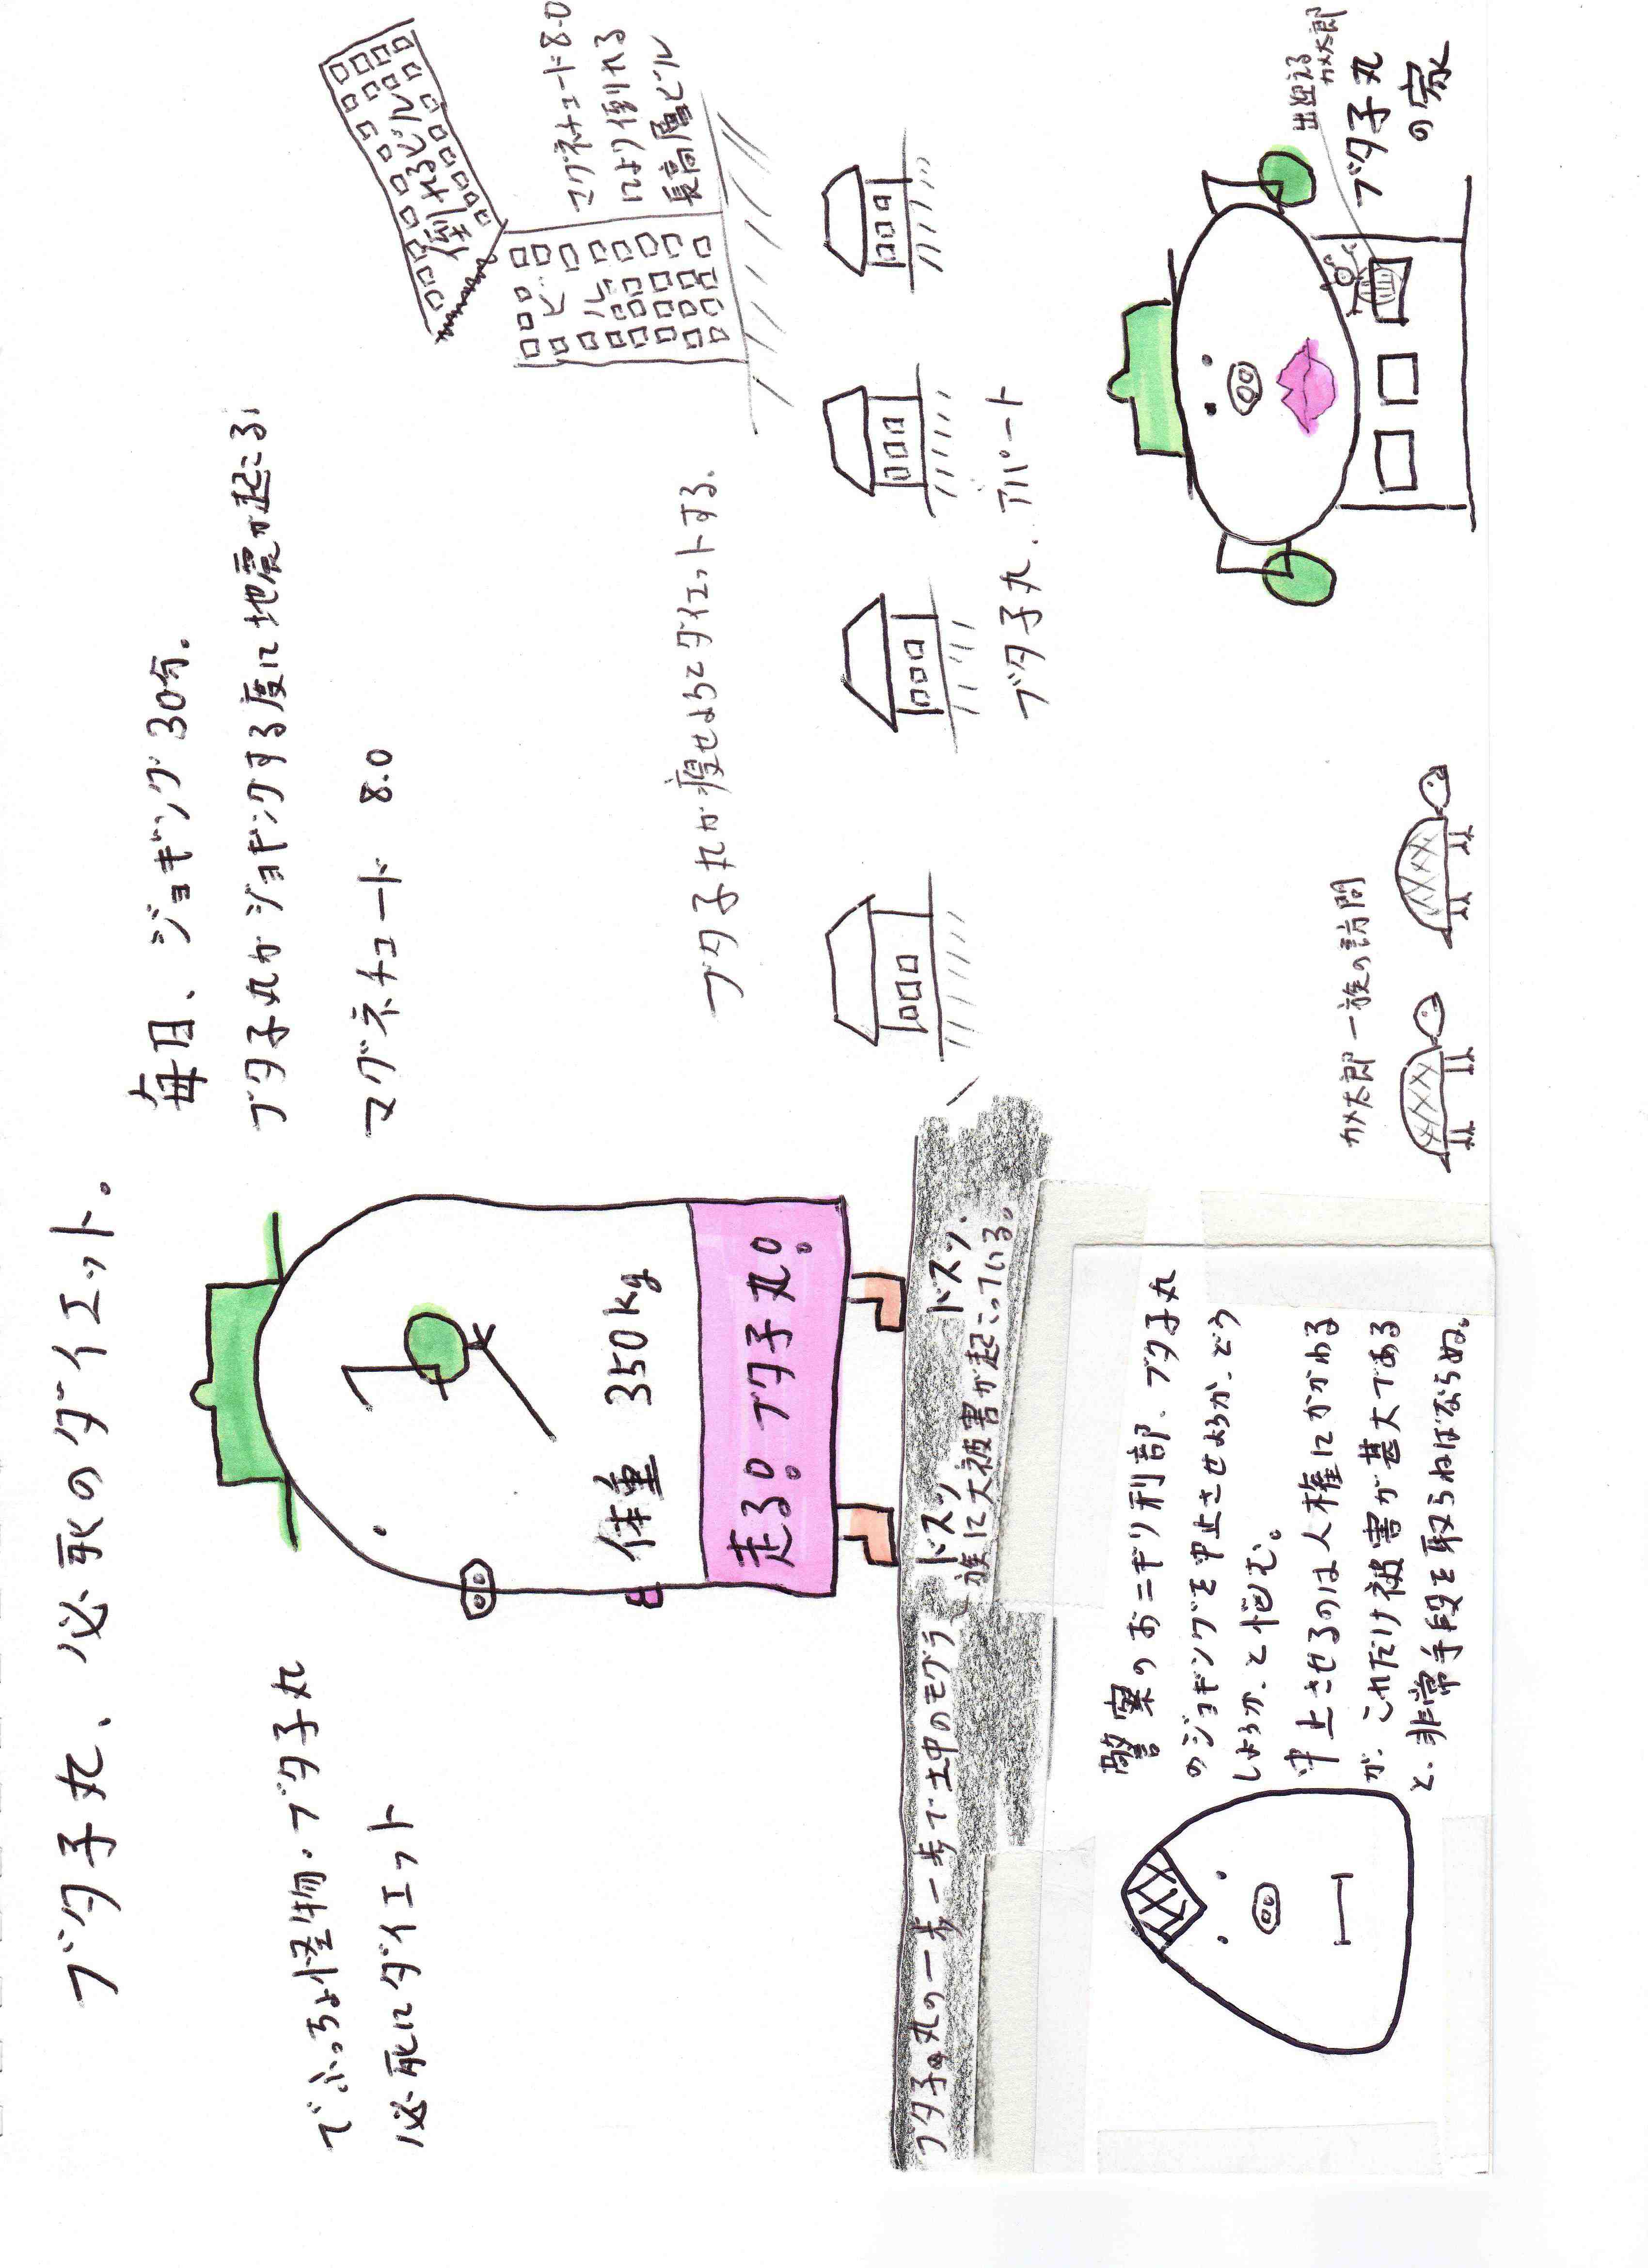 ブタ子丸、必死のダイエット。
毎日、ジョギング30分。
ブタ子丸がジョギングする度に地震が起こる。
マグネチュード 8.0
でぶっちょ怪物・ブタ子丸
必死にダイエット
体重 350kg
走る!ブタ子丸!
倒れるビル
ビル
マグネチュード8.0
により倒れる
長高層ビル
ブタ子丸が痩せようとダイエットする。
ブタ子丸の一歩一歩で土中のモグラ
一族に大被害が起こっている。
ドスッ ドスッ、
ブタ子丸、アパート
出迎える
カメ太郎
ブタ子丸
の家
カメ太郎一族の訪問
警察のおニギリ刑部、ブタ子丸
のジョギングを中止させようか、どう
しようか、と悩む。
中止させるのは人権にかかわる
が、これだけ被害が甚大である
と、非常手段を取らねばならぬ。